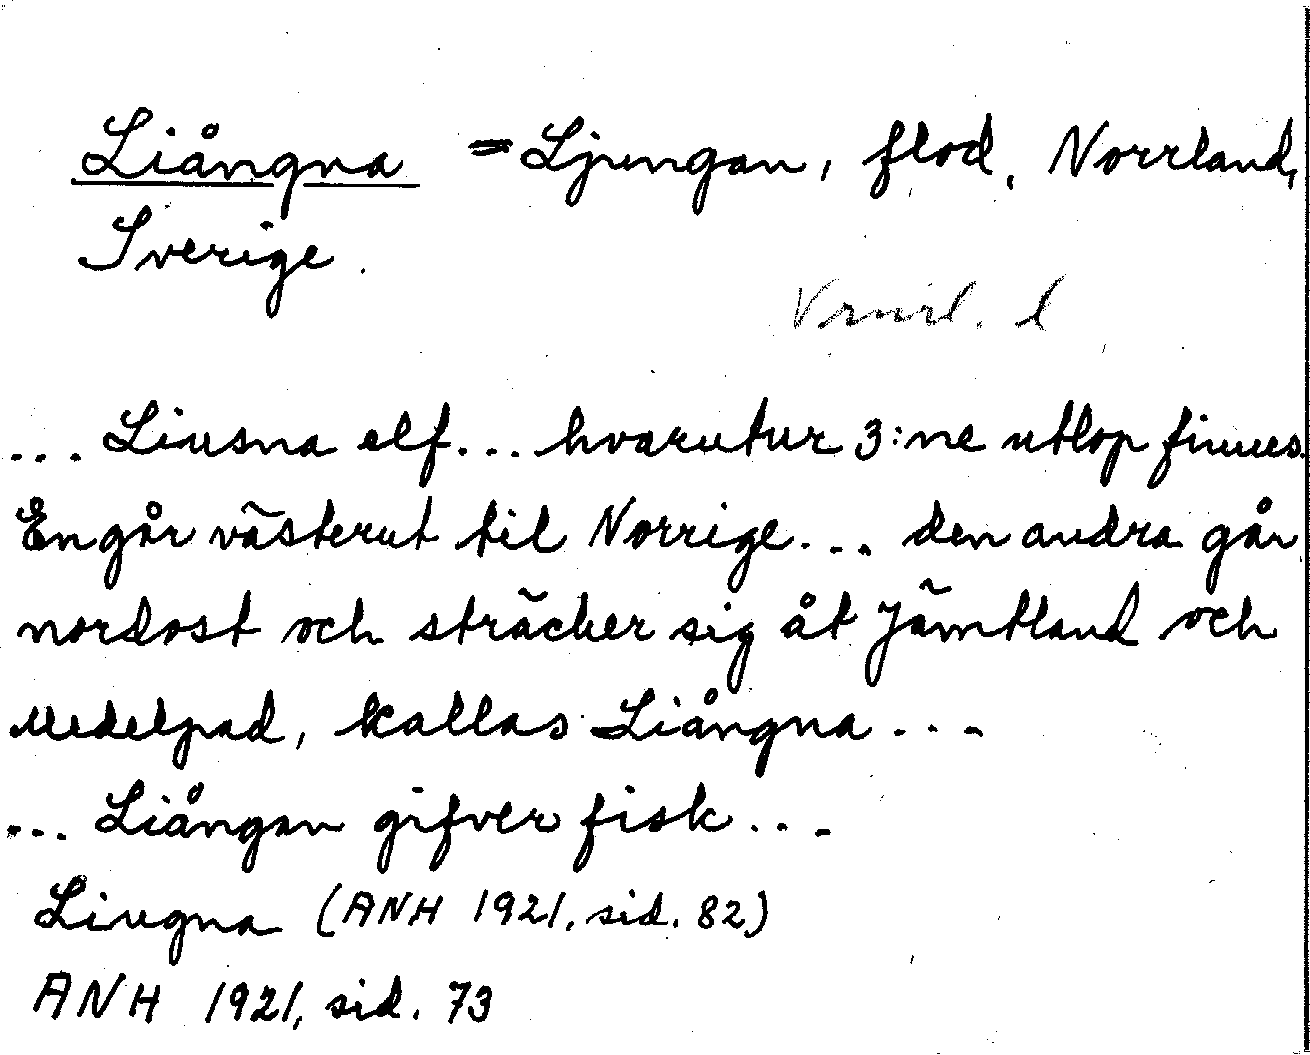 Liångna = Ljungan, flod, Norrland,
Sverige.
... Liusna elf... hvarutur 3:ne utlop finnes.
En går västerut til Norrige... den andra går
nordost och sträcker sig åt Jämtland och
Medelpad, kallas Liångna...
... Liångan gifver fisk...
Liugna (ANH 1921, sid. 82)
ANH 1921, sid. 73